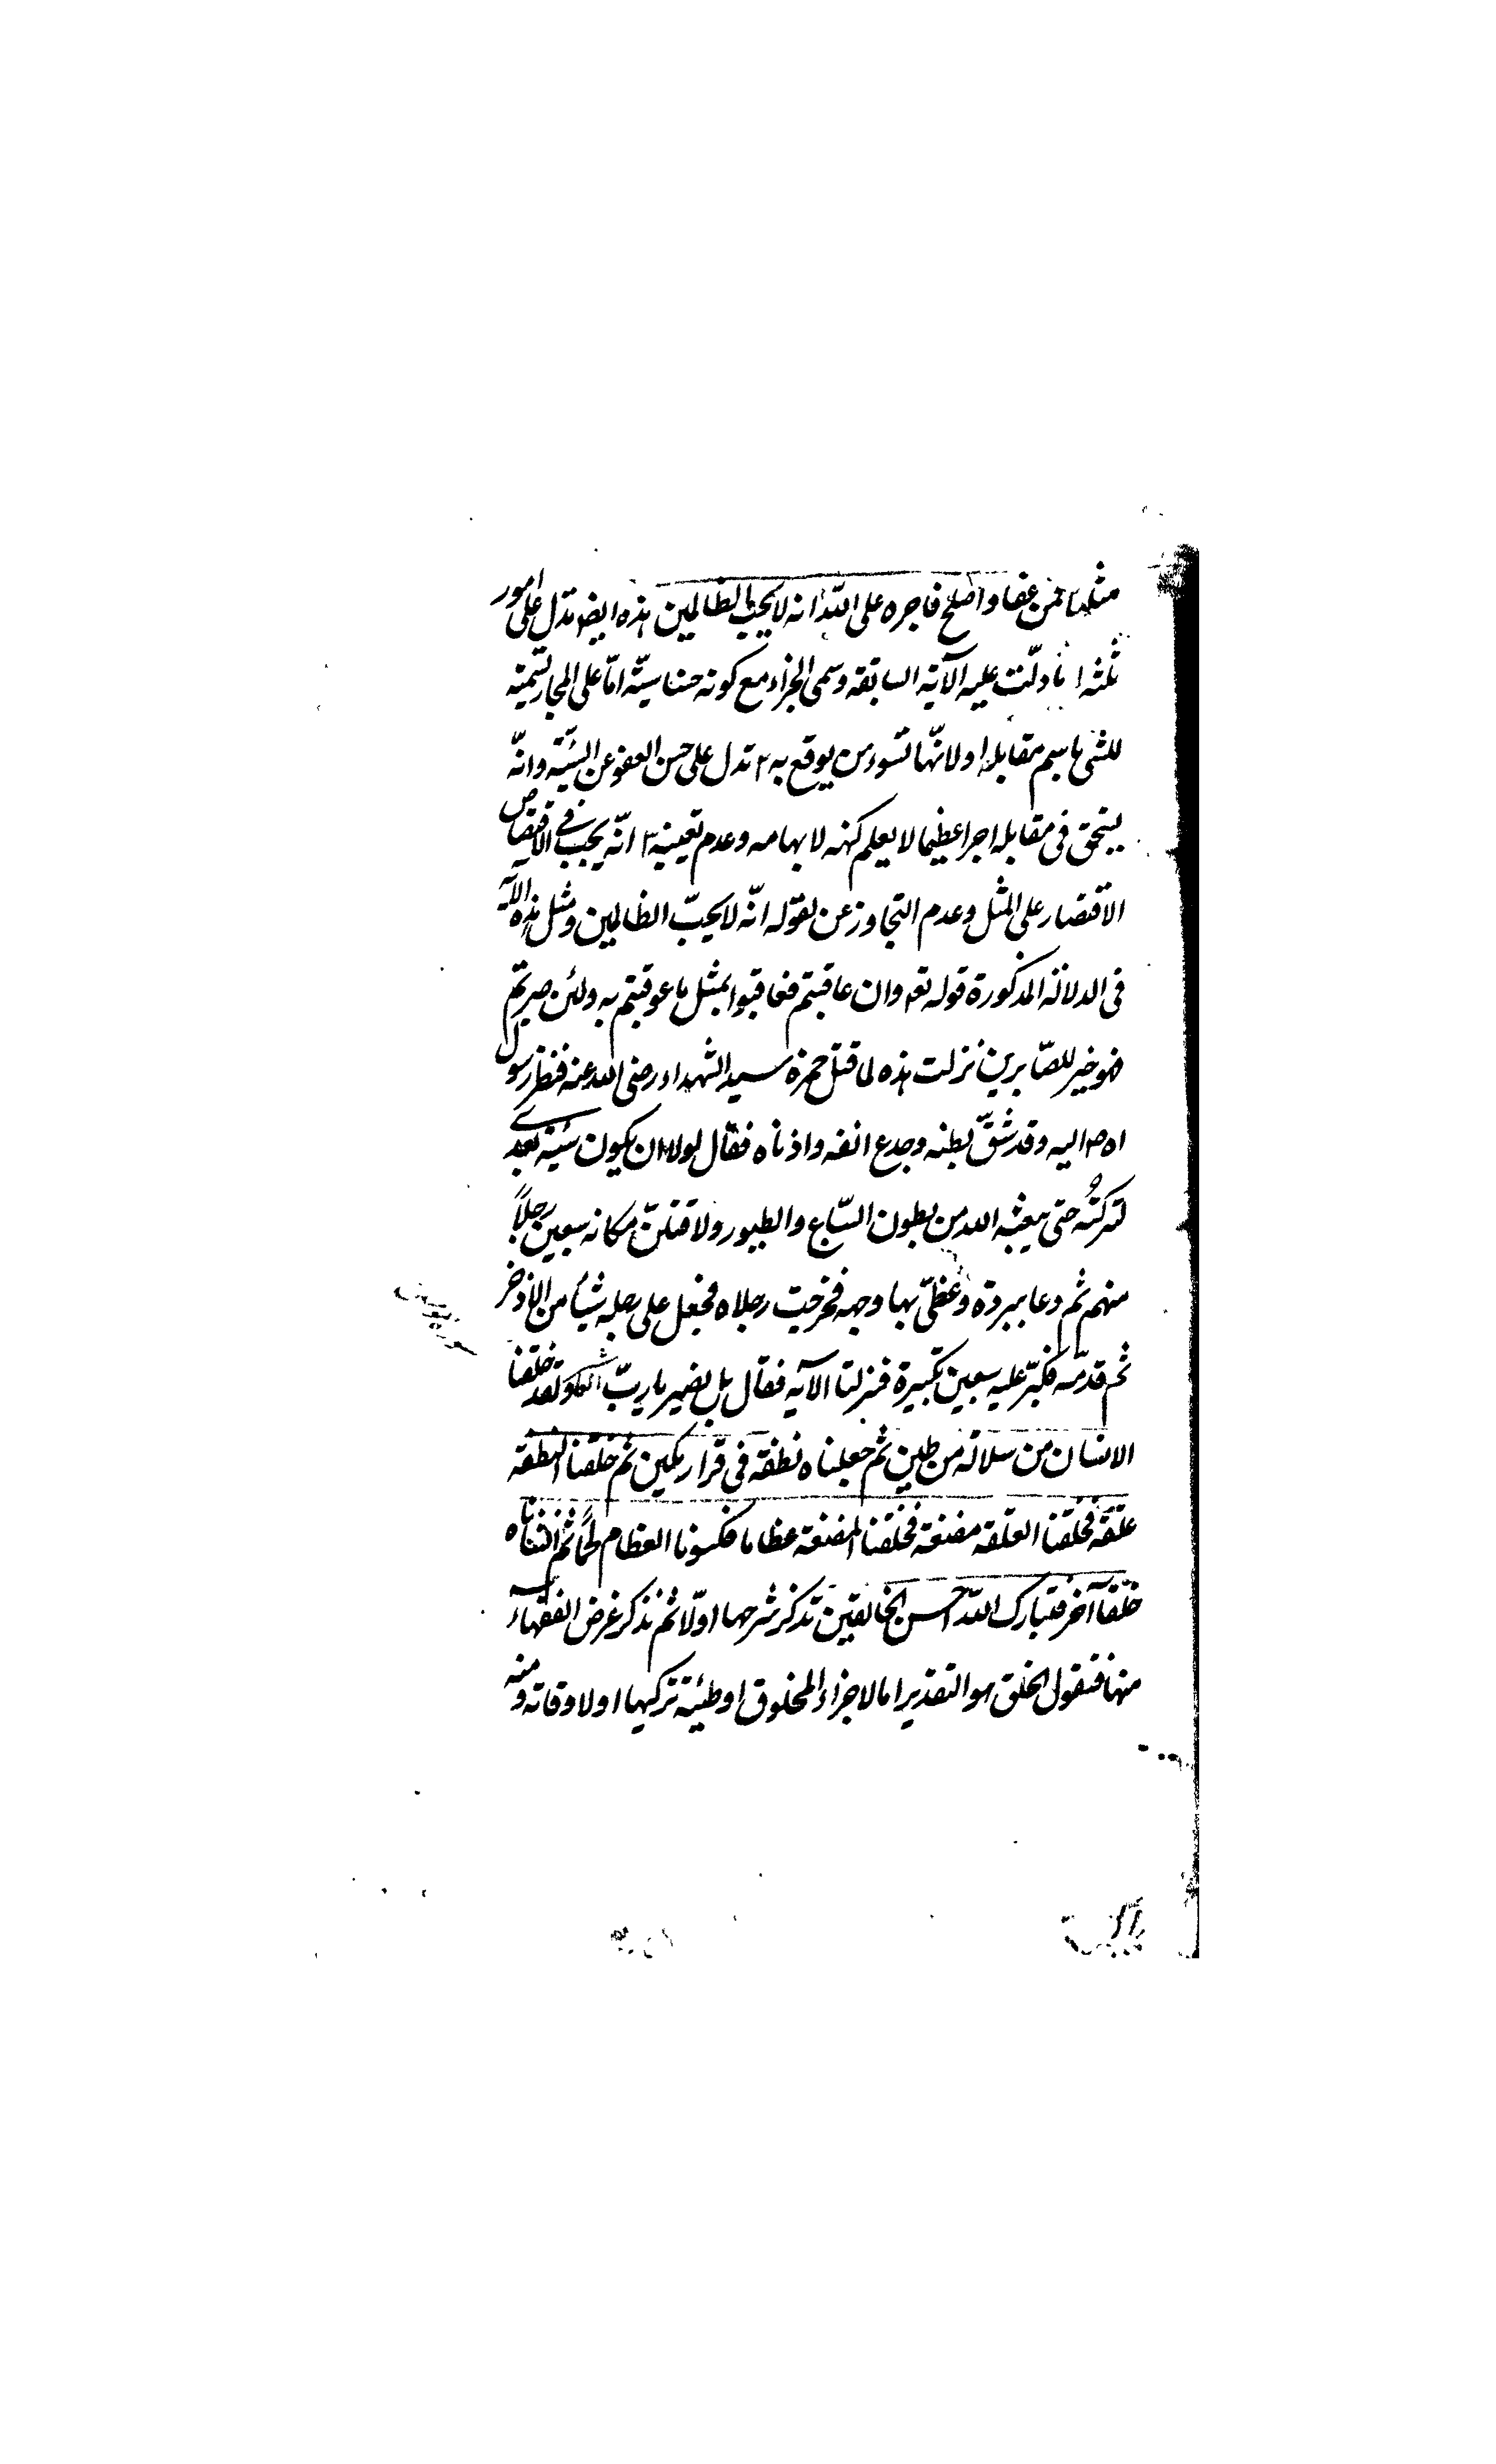 مثلها فمن عفا واصلح فاجره على الله انه لا يحب الظالمين هذه ايضا تدل على امور
ثلثه ا ما دلّت عليه الآية السابقه وسمى الجزاء مع كونه حسنا سيّئة امّا على المجاز تسمية
للشئ باسم مقابله او لانّها تسوء من يوقع به ٢ تدل على حسن العفو عن السّيئة وانّه
يستحق فى مقابله اجرا عظيما لا يعلم كنهه لابهامه وعدم تعيينه ٣ انّه يجب فى الاقتصاص
الاقتصار على المثل وعدم التجاوز عن لقوله انّه لا يحبّ الظالمين ومثل هذه الآية
فى الدلالة المذكورة قوله تعه وان عاقبتم فعاقبوا بمثل ما عوقبتم به ولئن صبرتم
لهو خير للصّابرين نزلت هذه لما قتل حمزة سيد الشهداء رضى الله عنه فنظر رسول
اه ص اليه وقد شقّ بطنه وجدع انفه واذناه فقال لولا ان يكون سيئة بعدى
لتركتُه حتى يبعثه الله من بطون السّباع والطيور ولاقتلنّ مكانه سبعين رجلاً
منهم ثم دعا ببردة وغطّى بها وجهه فخرجت رجلاه فجعل على رجله شيأ من الاذخر
ثم قدمّه فكبّر عليه سبعين تكبيرة فنزلت الآية فقال بل نصبر يا ربّ ولقد خلقنا
الانسان من سلالة من طين ثم جعلناه نطفة فى قرار مكين ثم خلقنا النطفة
علقة فخلقنا العلقة مضغة فخلقنا المضغة عظاما فكسونا العظام لحمًا ثم انشاناه
خلقا آخر فتبارك الله احسن الخالقين نذكر شرحها اوّلا ثم نذكر غرض الفقهآء
منها فنقول الخلق هو التقدير اما لاجزاء المخلوق او هيئة تركيبها او لاوقاته ومنه